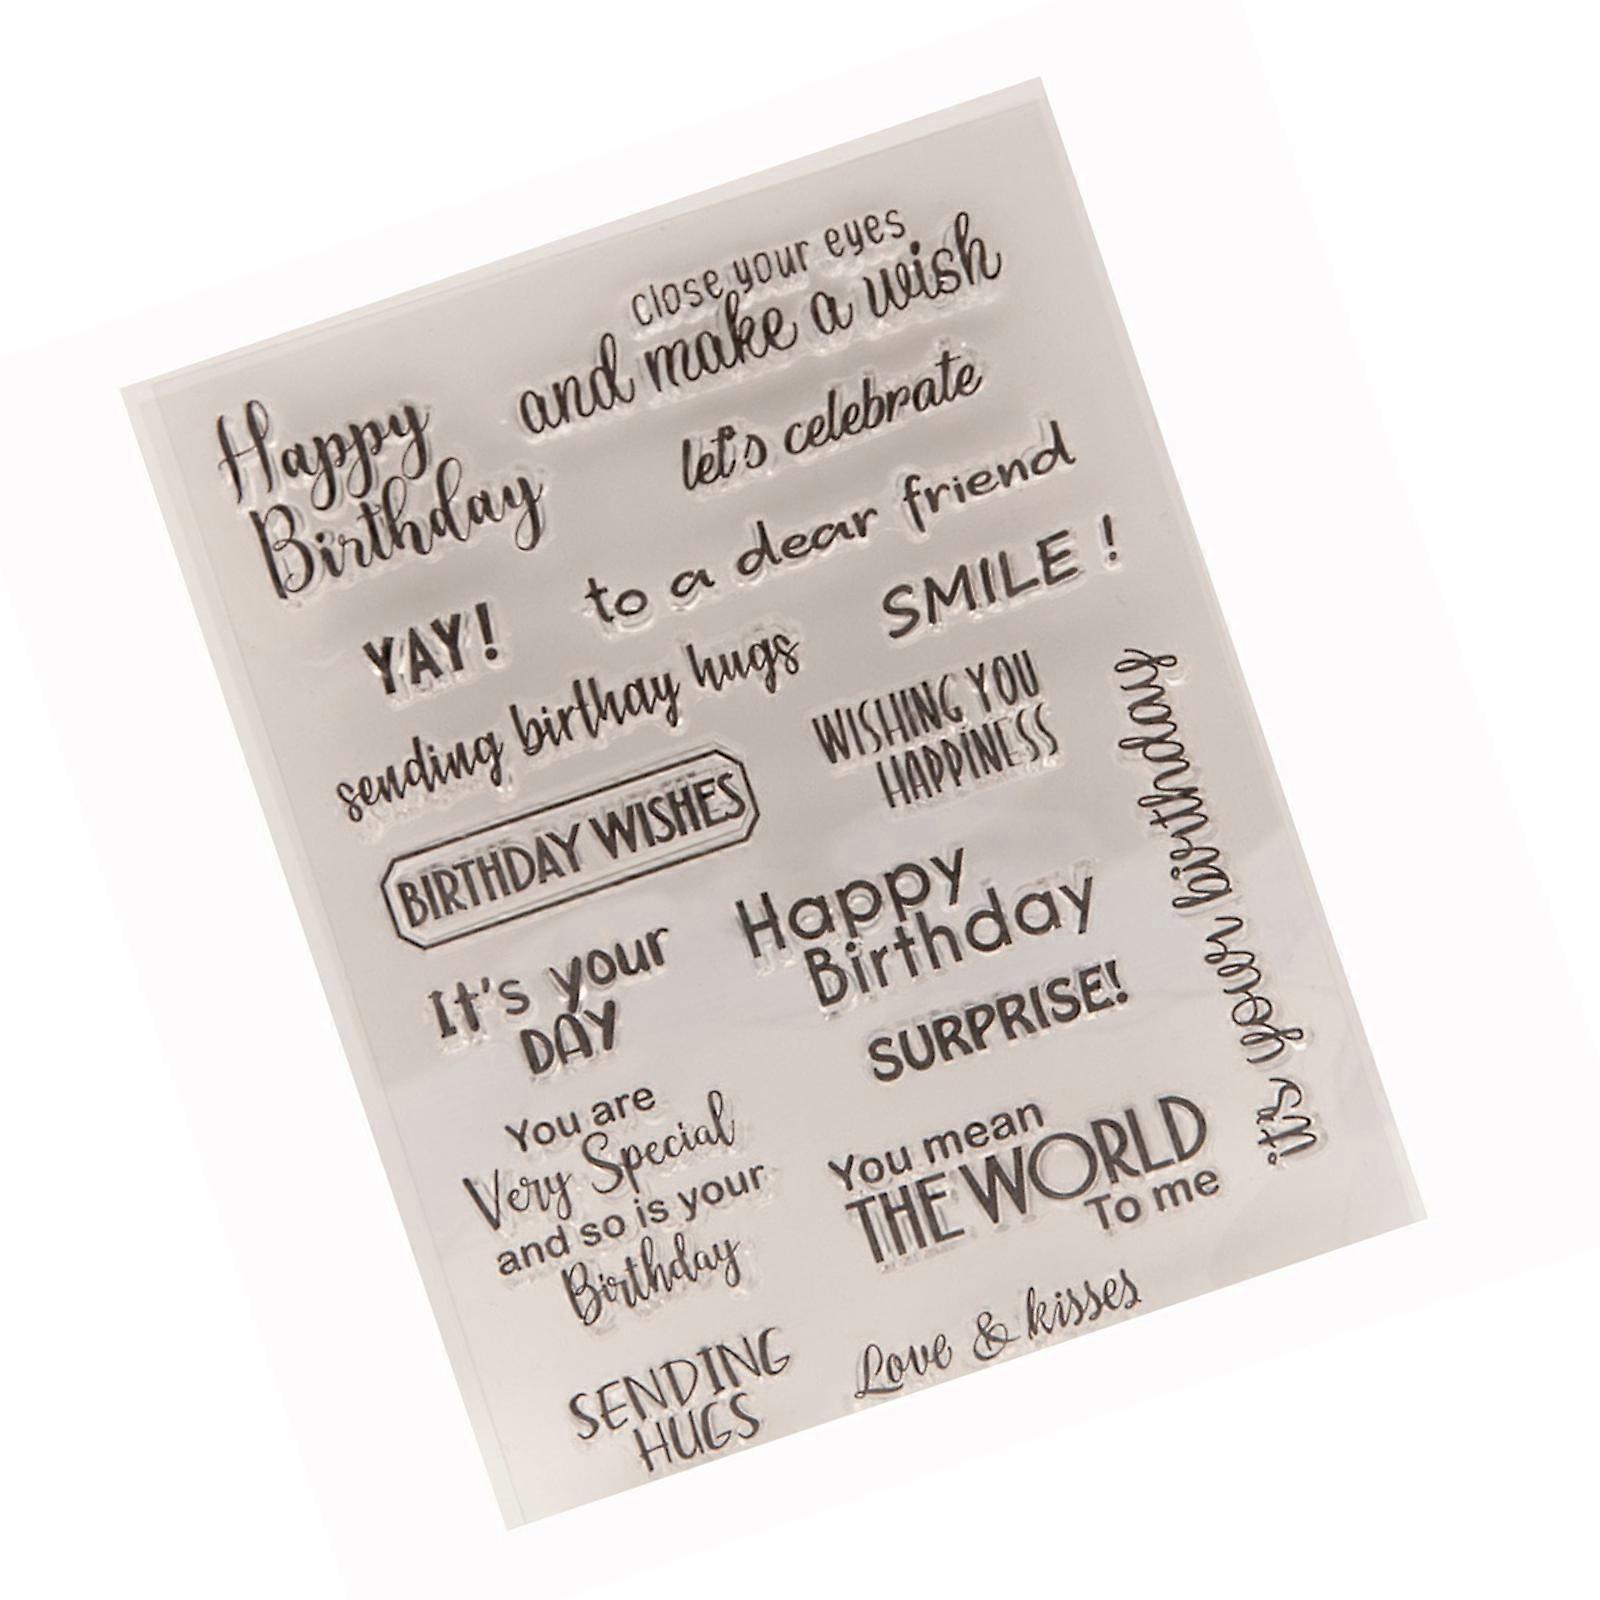 close your eyes
and make a wish
Happy
Birthday
let's celebrate
to a dear friend
YAY!
SMILE !
sending birthay hugs
WISHING YOU
HAPPINESS
it's your birthday
BIRTHDAY WISHES
Happy
Birthday
It's your
DAY
SURPRISE!
You are
Very Special
and so is your
Birthday
You mean
THE WORLD
To me
Love & kisses
SENDING
HUGS